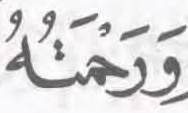 وَرَحْمَتُهُ